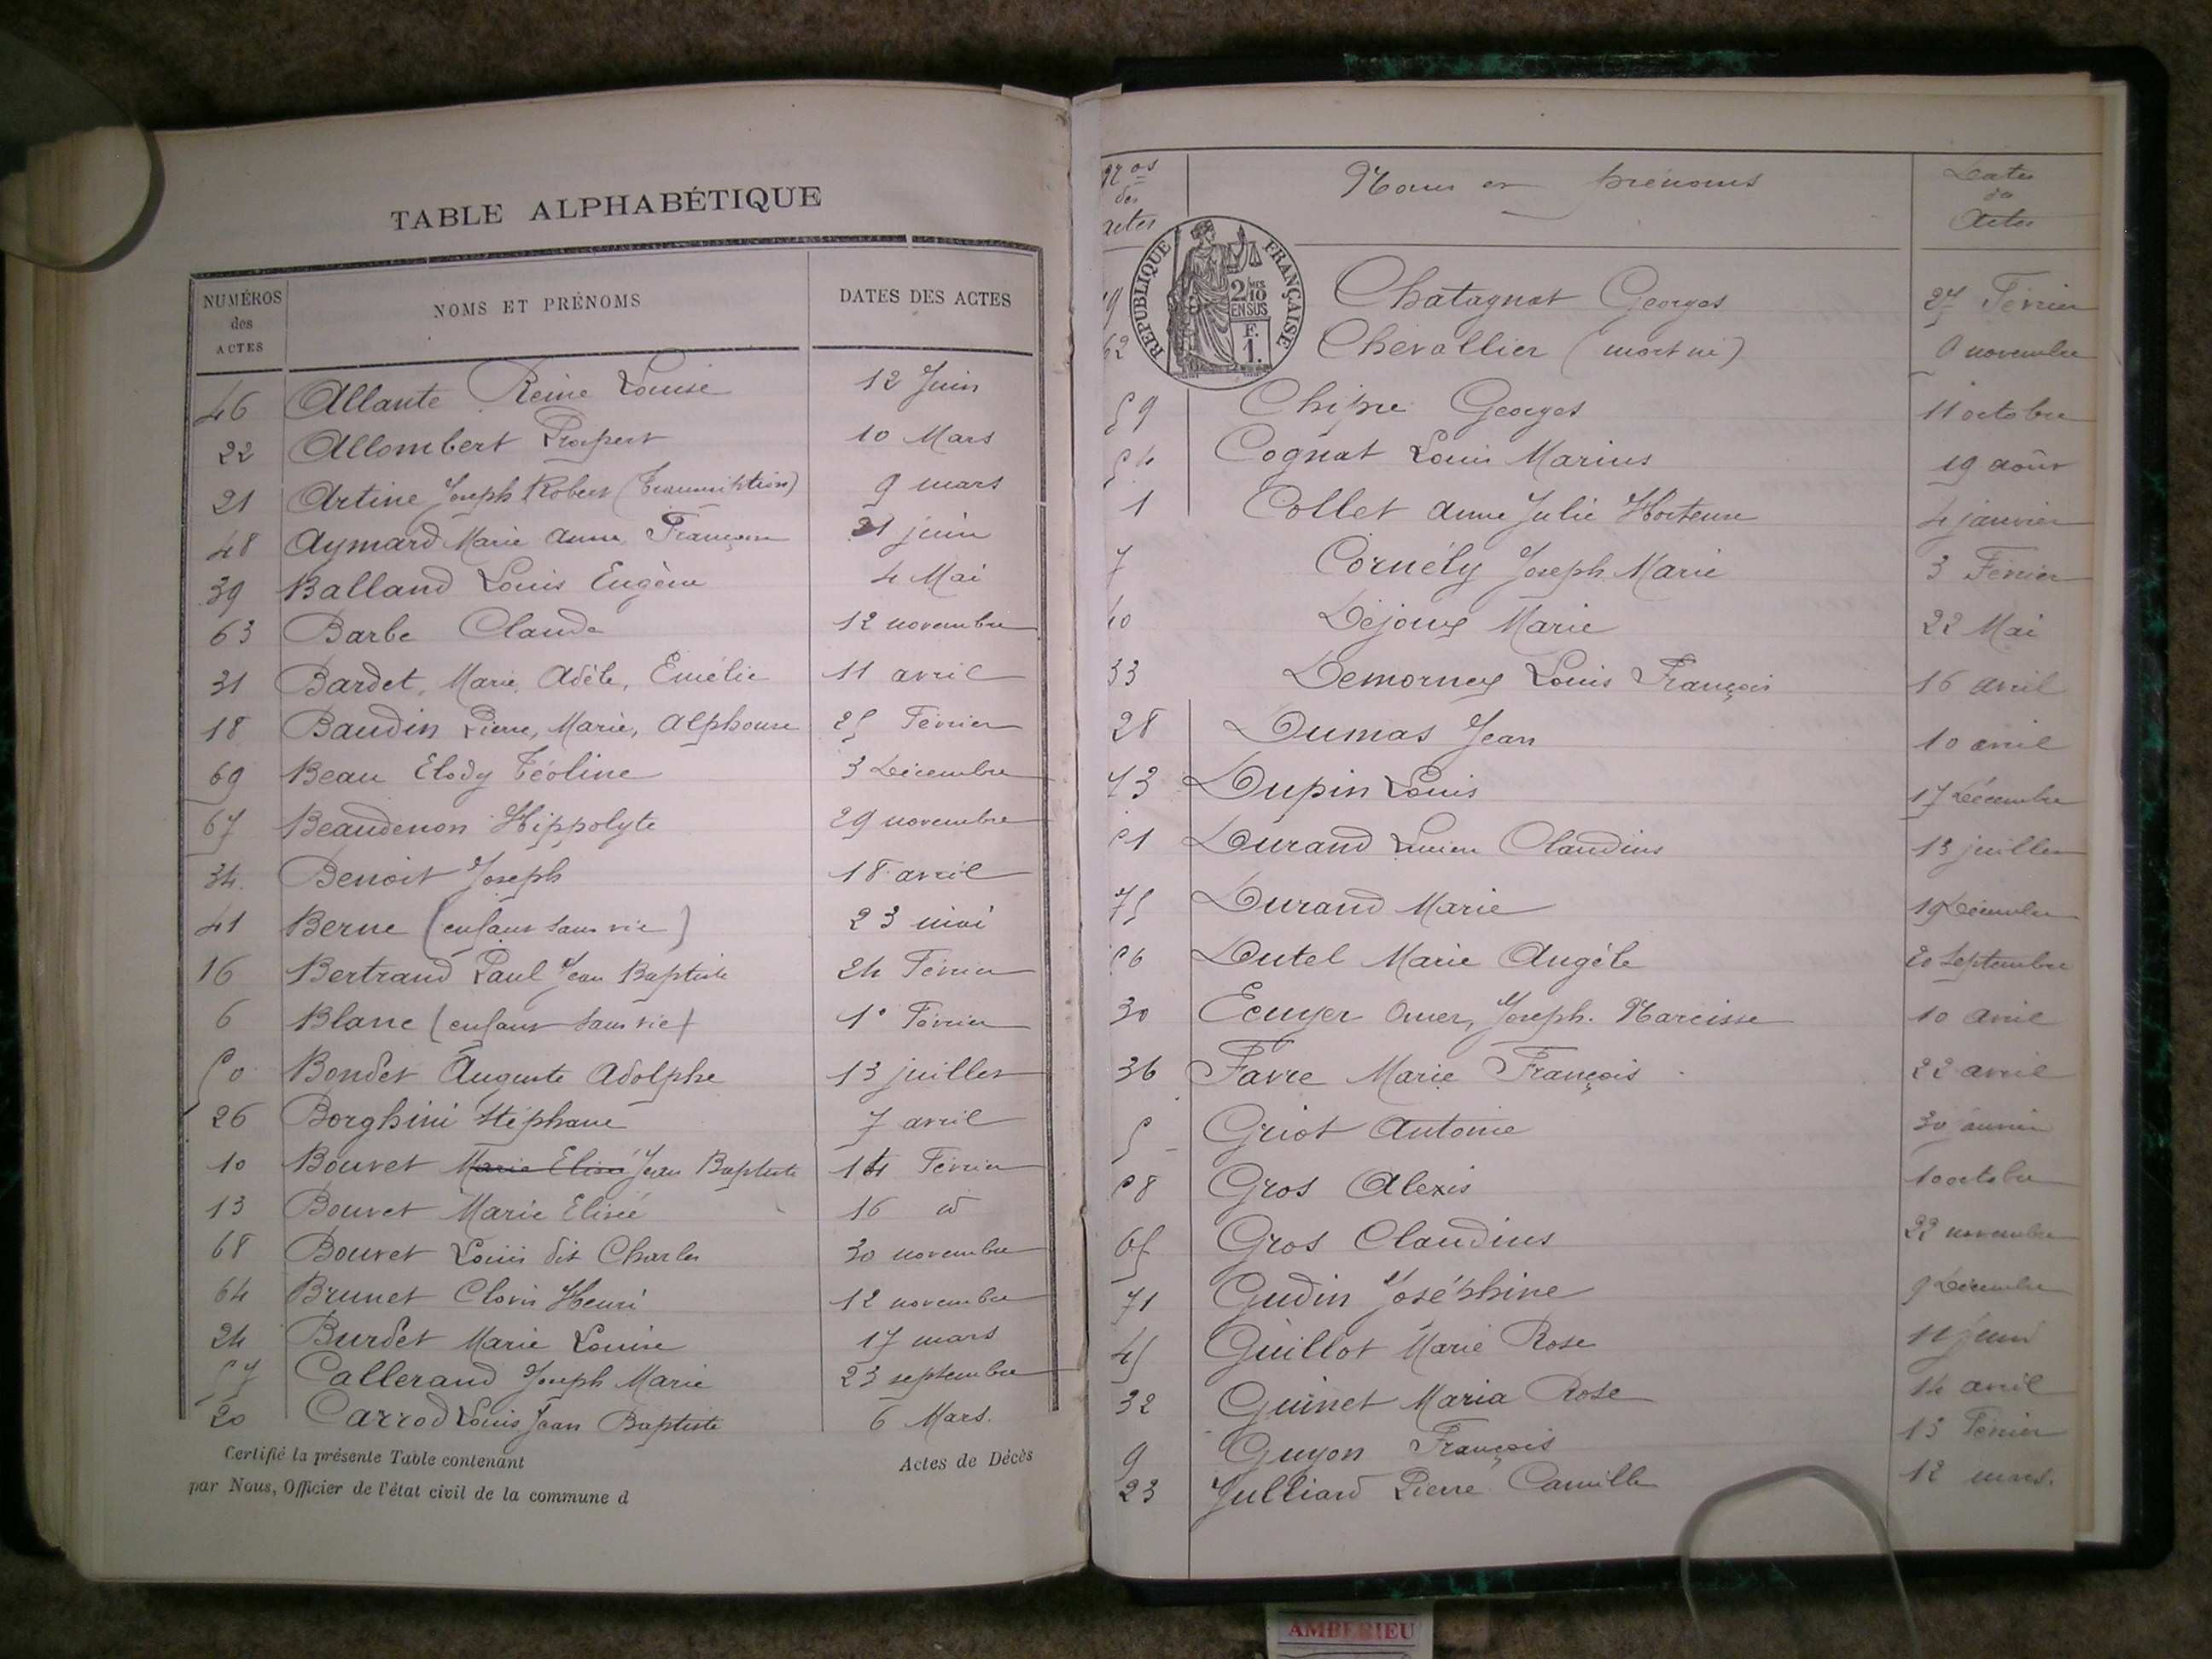 TABLE ALPHABÉTIQUE
NUMÉROS des ACTES NOMS ET PRÉNOMS DATES DES ACTES
46 Allante Reine Louise 12 Juin
22 Allombert Prospert 10 Mars
21 Artine Joseph Robert (Transcription) 9 mars
48 Aymard Marie Anne Françoise 21 juin
39 Balland Louis Eugène 4 Mai
63 Barbe Claude 12 novembre
31 Bardet, Marie, Adèle, Emélie 11 avril
18 Baudin Pierre, Marie, Alphonse 25 Février
69 Beau Elody Téoline 3 Décembre
67 Beaudenon Hippolyte 29 novembre
34. Benoit Joseph 18 avril
41 Berne (enfant sans vie) 23 mai
16 Bertrand Paul Jean Baptiste 24 Février
6 Blanc (enfant sans vie) 1º Février
50 Bondet Auguste Adolphe 13 juillet
26 Borghini Stéphane 7 avril
10 Bouvet Marie Elisé Jean Baptiste 14 Février
13 Bouvet Marie Elisée 16 d
68 Bouvet Louis dit Charles 30 novembre
64 Brunet Clovis Henri 12 novembre
24 Burdet Marie Louise 17 mars
57 Callerand Joseph Marie 23 septembre
20 Carrod Louis Jean Baptiste 6 Mars.
Certifié la présente Table contenant Actes de Décès
par Nous, Officier de l'état civil de la commune d
Nos des actes Noms et prénoms Dates des Actes
RÉPUBLIQUE FRANÇAISE
2/10 EN SUS
F. 1.
19 Chatagnat Georges 27 Février
62 Chevallier (mort né) novembre
59 Chipre Georges 11 octobre
54 Cognat Louis Marius 19 août
1 Collet Anne Julie Hortense 4 janvier
7 Cornély Joseph Marie 3 Février
40 Dejoux Marie 22 Mai
33 Demornex Louis François 16 avril
28 Dumas Jean 10 avril
73 Dupin Louis 17 Décembre
51 Durand Lucien Claudius 13 juillet
75 Durand Marie 19 Décembre
56 Dutel Marie Angèle 20 Septembre
30 Ecuyer Omer, Joseph. Narcisse 10 avril
36 Favre Marie François 22 avril
5 Griot Antoine 30 janvier
58 Gros Alexis 10 octobre
65 Gros Claudius 22 novembre
71 Gudin Joséphine 9 Décembre
45 Guillot Marie Rose 11 juin
32 Guinet Maria Rose 14 avril
9 Guyon François 13 Février
23 Julliard Pierre Camille 12 mars.
AMBERIEU